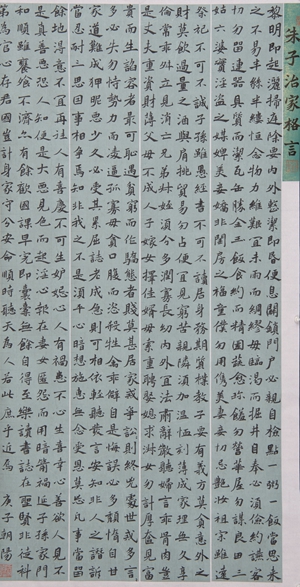 朱子治家格言
黎明即起灑掃庭除要內外整潔既昏便息關鎖門戶必親自檢點一粥一飯當思來
處不易半絲半縷恆念物力維艱宜未雨而綢繆毋臨渴而掘井自奉必須儉約讌客
切勿留連器具質而潔瓦缶勝金玉飲食約而精園蔬愈珍饈勿營華屋勿謀良田三
姑六婆實淫盜之媒婢美妾嬌非閨房之福童僕勿用俊美妻妾切忌艷妝祖宗雖遠
祭祀不可不誠子孫雖愚經書不可不讀居身務期質樸教子要有義方莫貪意外之
財莫飲過量之酒與肩挑貿易勿占便宜見窮苦親鄰須加溫恤刻薄成家理無久享
倫常乖舛立見消亡兄弟叔姪須分多潤寡長幼內外宜法肅辭嚴聽婦言乖骨肉豈
是丈夫重資財薄父母不成人子嫁女擇佳婿毋索重聘娶媳求淑女勿計厚奩見富
貴而生諂容者最可恥遇貧窮而作驕態者賤莫甚居家戒爭訟訟則終凶處世戒多言言
多必失勿恃勢力而凌逼孤寡毋貪口腹而恣殺牲禽乖僻自是悔誤必多頹惰自甘
家道難成狎昵惡少久必受其累屈志老成急則可相依輕聽發言安知非人之譖訴
當忍耐三思因事相爭焉知非我之不是須平心暗想施惠無念受恩莫忘凡事當留
餘地得意不宜再往人有喜慶不可生妒忌心人有禍患不可生喜幸心善欲人見不
是真善惡恐人知便是大惡見色而起淫心報在妻女匿怨而用暗箭禍延子孫家門
和順雖饔飧不濟亦有餘歡國課早完即囊橐無餘自得至樂讀書志在聖賢非徒科
第為官心存君國豈計身家守分安命順時聽天為人若此庶乎近焉 庚子朝陽